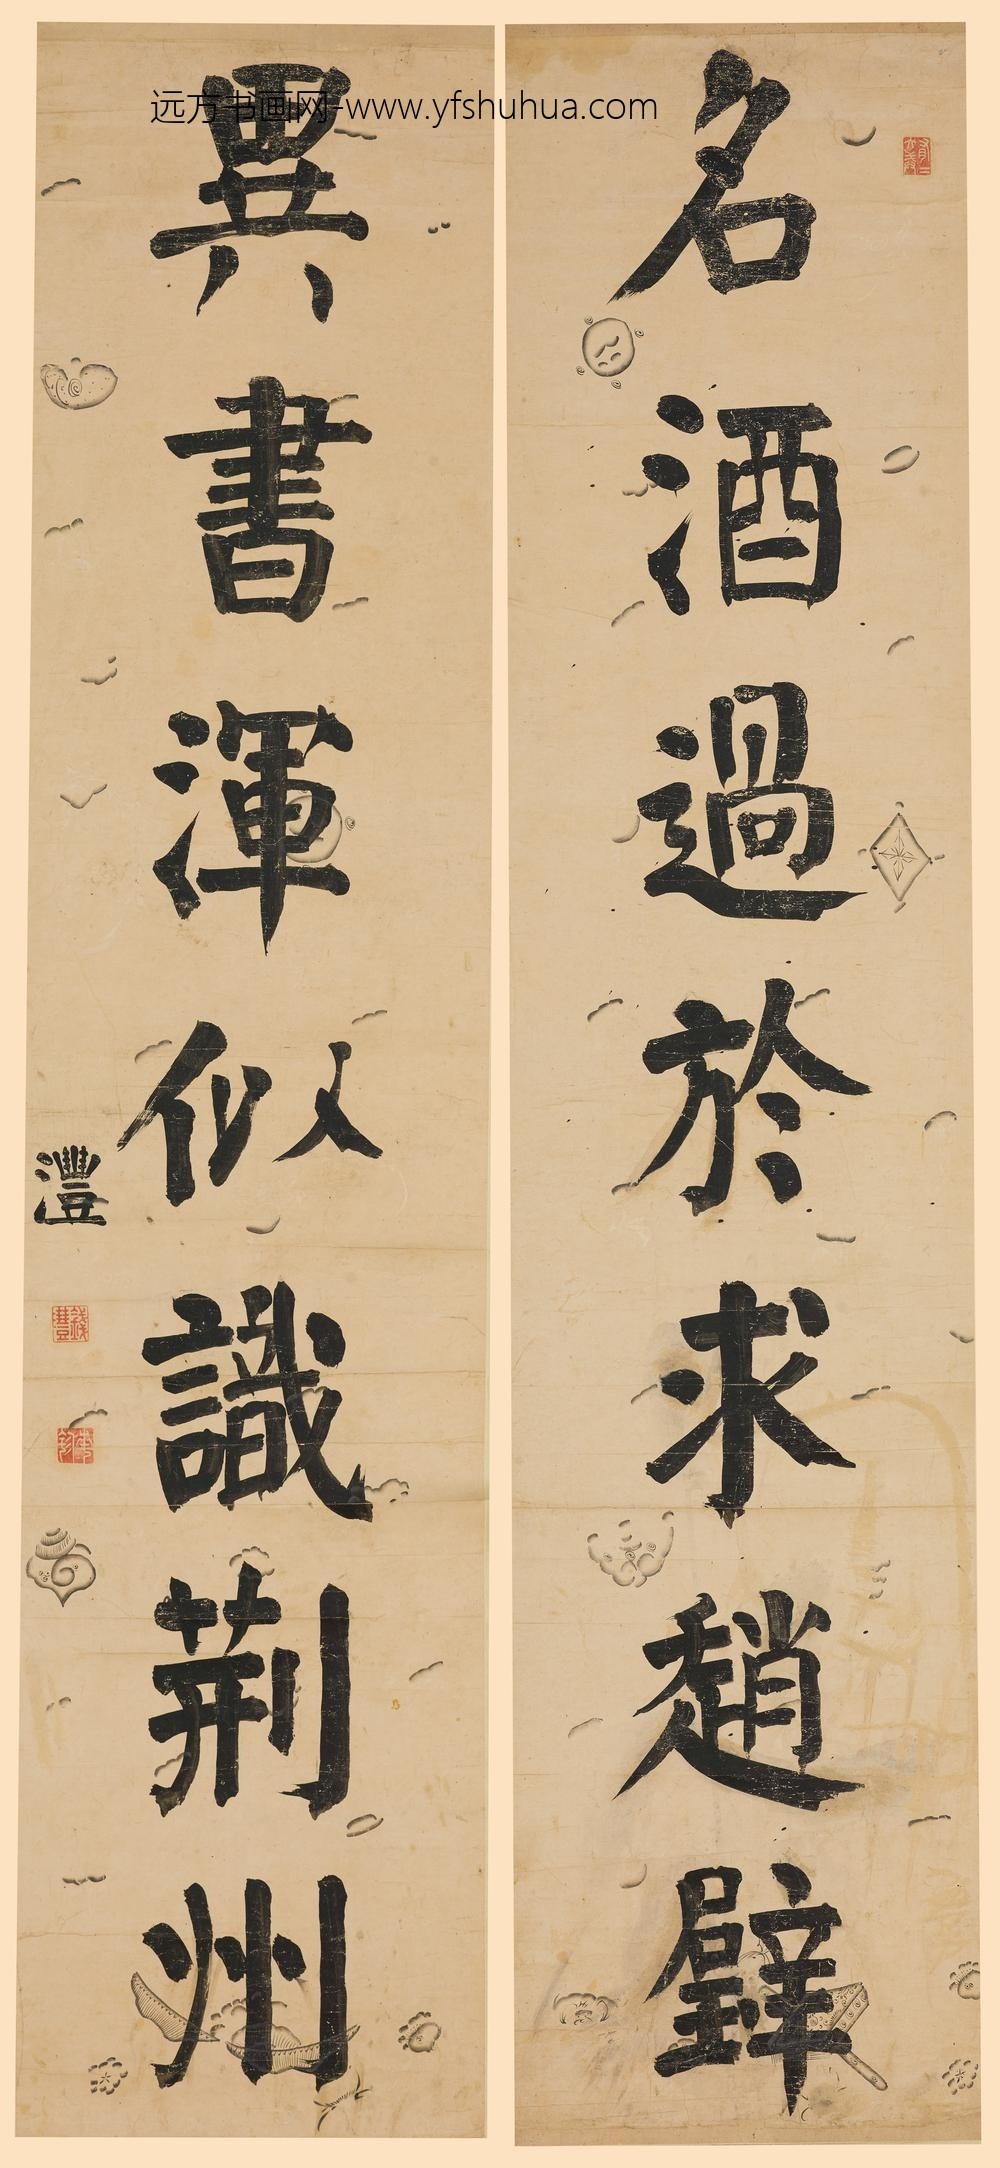 远方书画网-www.yfshuhua.com
名酒過於求趙璧
異書渾似識荊州
灃
錢灃